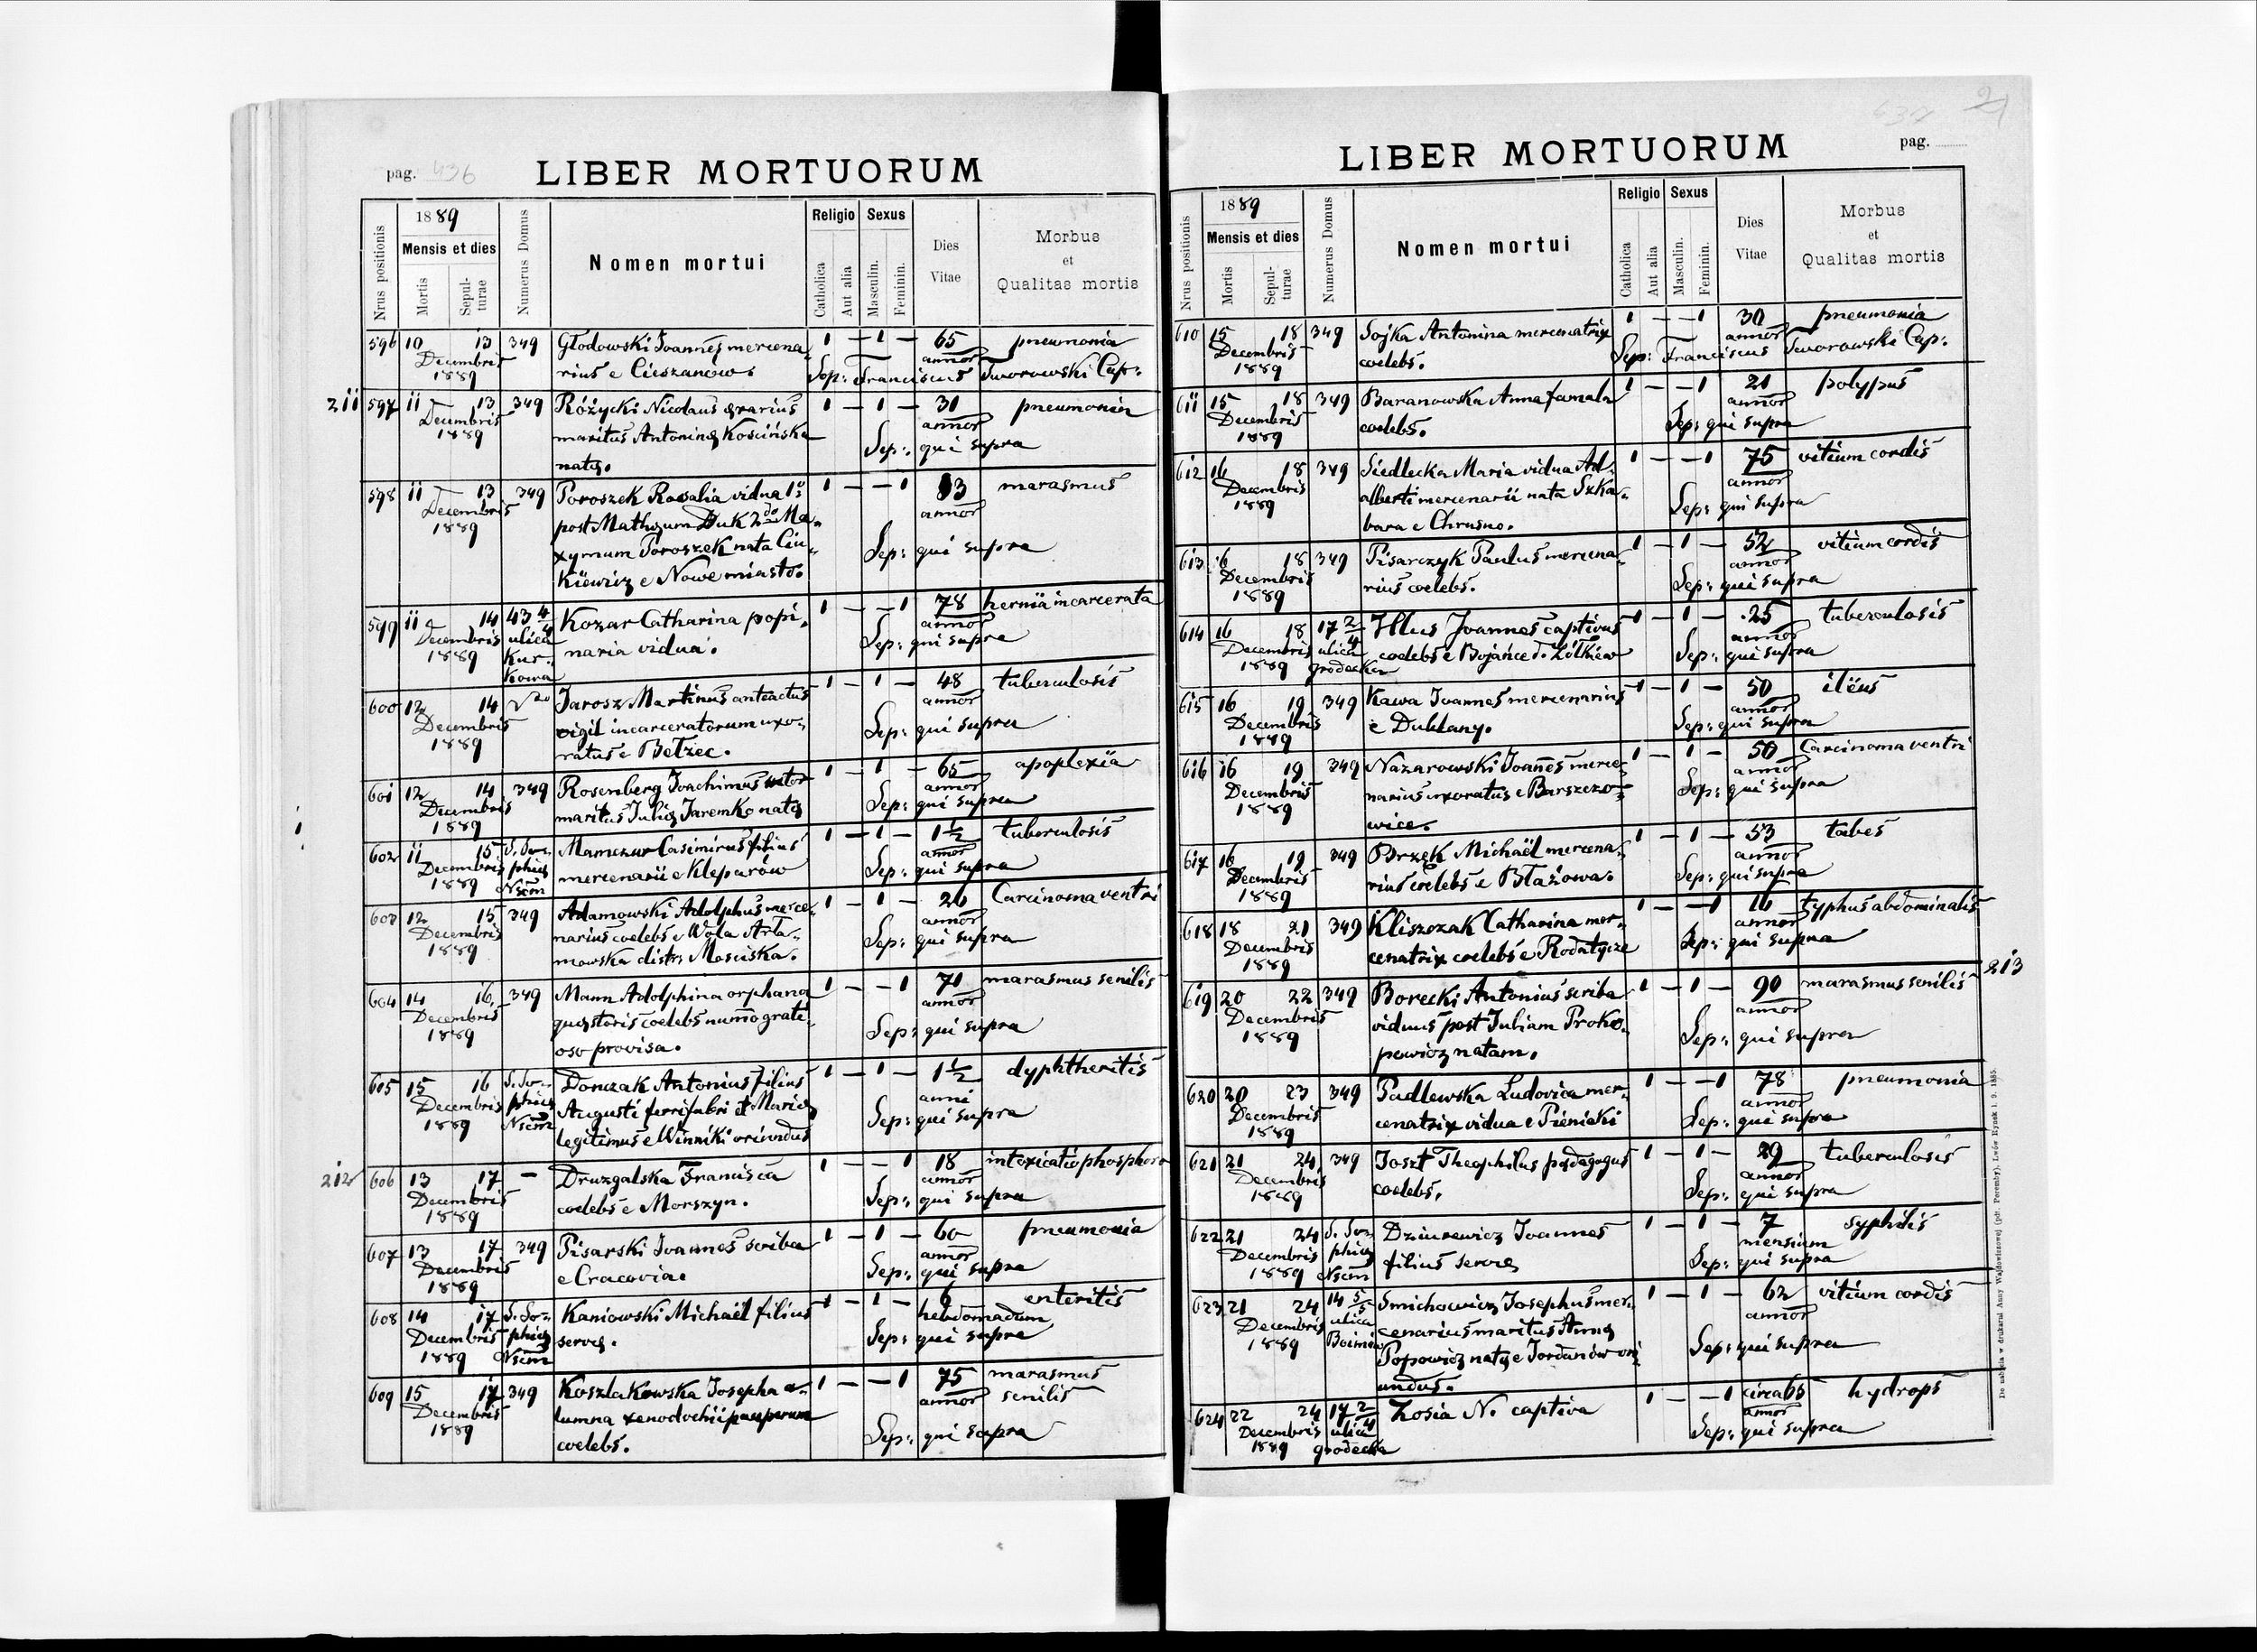 pag. 436
LIBER MORTUORUM
Nrus positionis
1889
Mensis et dies
Mortis
Sepul-
turae
Numerus Domus
Nomen mortui
Religio
Catholica
Aut alia
Sexus
Masculin.
Feminin.
Dies
Vitae
Morbus
et
Qualitas mortis
596 10 13 349 Głodowski Joannes mercena 1 — 1 — 65 pneumonia
Decembris rius e Cieszanow. annor
1889 Sep: Franciscus Tworowski Cap:
211 597 11 13 349 Różycki Nicolaus ærarius 1 — 1 — 31 pneumonia
Decembris maritus Antoninæ Kościńska annor
1889 natæ. Sep: qui supra
598 11 13 349 Poroszek Rosalia vidua 1º 1 — — 1 83 marasmus
Decembris post Mathæum Duk 2do Ma- annor
1889 xymum Poroszek nata Ciu- Sep: qui supra
Kiewicz e Nowe miasto.
599 11 14 43 4/4 Kozar Catharina popi- 1 — — 1 78 hernia incarcerata
Decembris ulica naria vidua. annor
1889 Kur- Sep: qui supra
kowa
600 12 14 Jarosz Martinus anteactus 1 — 1 — 48 tuberculosis
Decembris vigil incarceratorum uxo- annor
1889 ratus e Bełżec. Sep: qui supra
601 12 14 349 Rosenberg Joachimus sutor 1 — 1 — 65 apoplexia
Decembris maritus Juliæ Jaremko natæ annor
1889 Sep: qui supra
602 11 15 S. So- Mamczur Casimirus filius 1 — 1 — 1½ tuberculosis
Decembris phiæ mercenarii e Kleparów annor
1889 Nscm Sep: qui supra
603 12 15 349 Adamowski Adolphus merce- 1 — 1 — 26 Carcinoma ventri
Decembris narius coelebs e Wola Arła- annor
1889 mowska distr. Mościska. Sep: qui supra
604 14 16 349 Mann Adolphina orphana 1 — — 1 71 marasmus senilis
Decembris quæstoris coelebs numo grati- annor
1889 oso provisa. Sep: qui supra
605 15 16 S. So- Donczak Antonius filius 1 — 1 — 1½ dyphtheritis
Decembris phiæ Augusti ferrifabri et Mariæ anni
1889 Nscm legitimus e Winniki oriundus Sep: qui supra
212 606 13 17 — Druzgalska Francisca 1 — — 1 18 intoxicatio phosphoro
Decembris coelebs e Morszyn. annor
1889 Sep: qui supra
607 13 17 349 Pisarski Joannes scriba 1 — 1 — 60 pneumonia
Decembris e Cracovia. annor
1889 Sep: qui supra
608 14 17 S. So- Kaniowski Michaël filius 1 — 1 — 6 enteritis
Decembris phiæ servæ. hebdomadum
1889 Nscm Sep: qui supra
609 15 17 349 Koszlakowska Josepha a- 1 — — 1 75 marasmus
Decembris lumna xenodochii pauperum annor senilis
1889 coelebs. Sep: qui supra
LIBER MORTUORUM
pag.
Nrus positionis
1889
Mensis et dies
Mortis
Sepul-
turae
Numerus Domus
Nomen mortui
Religio
Catholica
Aut alia
Sexus
Masculin.
Feminin.
Dies
Vitae
Morbus
et
Qualitas mortis
610 15 18 349 Sojka Antonina mercenatrix 1 — — 1 30 pneumonia
Decembris coelebs. annor
1889 Sep: Franciscus Tworowski Cap:
611 15 18 349 Baranowska Anna famula 1 — — 1 21 polypus
Decembris coelebs. annor
1889 Sep: qui supra
612 16 18 349 Siedlecka Maria vidua Ad- 1 — — 1 75 vitium cordis
Decembris alberti mercenarii nata Szka- annor
1889 bara e Chrusno. Sep: qui supra
613 16 18 349 Pisarczyk Paulus mercena- 1 — 1 — 52 vitium cordis
Decembris rius coelebs. annor
1889 Sep: qui supra
614 16 18 17 2/4 Hlus Joannes captivus 1 — 1 — 25 tuberculosis
Decembris ulica coelebs e Bojańce d. Żółkiew annor
1889 grodecka Sep: qui supra
615 16 19 349 Kawa Joannes mercenarius 1 — 1 — 50 ilëus
Decembris e Dublany. annor
1889 Sep: qui supra
616 16 19 349 Nazarowski Joañes merce- 1 — 1 — 50 Carcinoma ventri
Decembris narius uxoratus e Barszczo- annor
1889 wice. Sep: qui supra
617 16 19 349 Brzęk Michaël mercena- 1 — 1 — 53 tabes
Decembris rius coelebs e Błażowa. annor
1889 Sep: qui supra
618 18 21 349 Kliszczak Catharina mer- 1 — — 1 16 typhus abdominalis
Decembris cenatrix coelebs e Rodatycze annor
1889 Sep: qui supra
213
619 20 22 349 Borecki Antonius scriba 1 — 1 — 90 marasmus senilis
Decembris viduus post Juliam Proko- annor
1889 powicz natam. Sep: qui supra
620 20 23 349 Padlewska Ludovica mer- 1 — — 1 78 pneumonia
Decembris cenatrix vidua e Pieniaki annor
1889 Sep: qui supra
621 21 24 349 Joszt Theophilus pædagogus 1 — 1 — 29 tuberculosis
Decembris coelebs. annor
1889 Sep: qui supra
622 21 24 S. So- Dziurewicz Joannes 1 — 1 — 7 syphilis
Decembris phiæ filius servæ mensium
1889 Nscm Sep: qui supra
623 21 24 14 5/5 Smichowicz Josephus mer- 1 — 1 — 62 vitium cordis
Decembris ulica cenarius maritus Annæ annor
1889 Boimów Popowicz natæ e Jordanów ori- Sep: qui supra
undus.
624 22 24 17 2/4 Zosia N. captiva 1 — — 1 circa 65 hydrops
Decembris ulica annor
1889 grodecka Sep: qui supra